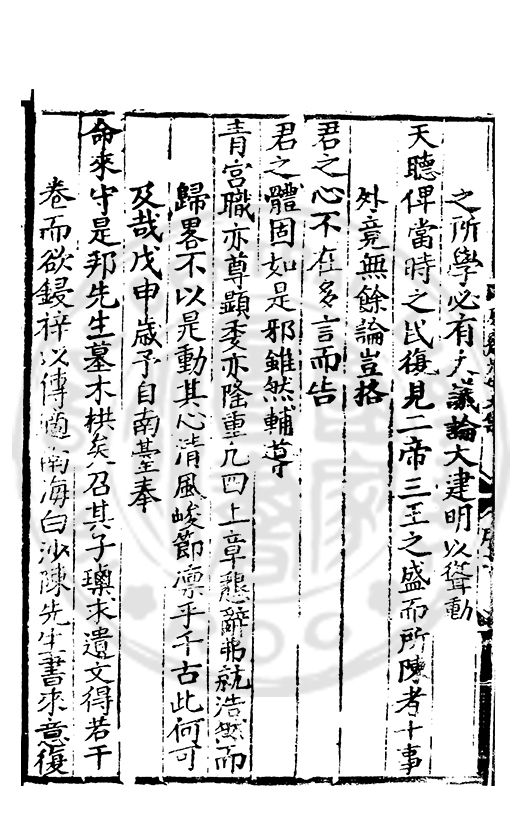 之所學必有大議論大建明以聳動
天聽俾當時之民復見二帝三王之盛而所陳者十事
外竟無餘論豈格
君之心不在多言而告
君之體固如是邪雖然輔導
青宮職亦尊顯委亦隆重凡四上章懇辭弗就浩然而
歸畧不以是動其心清風峻節凛乎千古此何可
及哉戊申歳予自南臺奉
命來守是邦先生墓木拱矣召其子璵求遺文得若干
卷而欲鋟梓以傳適南海白沙陳先生書來意復